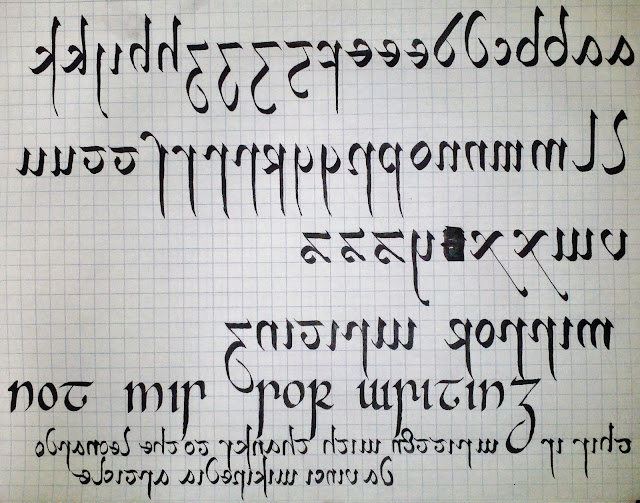 a a b b c d e e e f g g g g h h i j k k
l l m m n n o p
v w x x y z z z z
mirror writing
not mir ror writing
this is written with thanks to the leonardo
da vinci wikipedia article